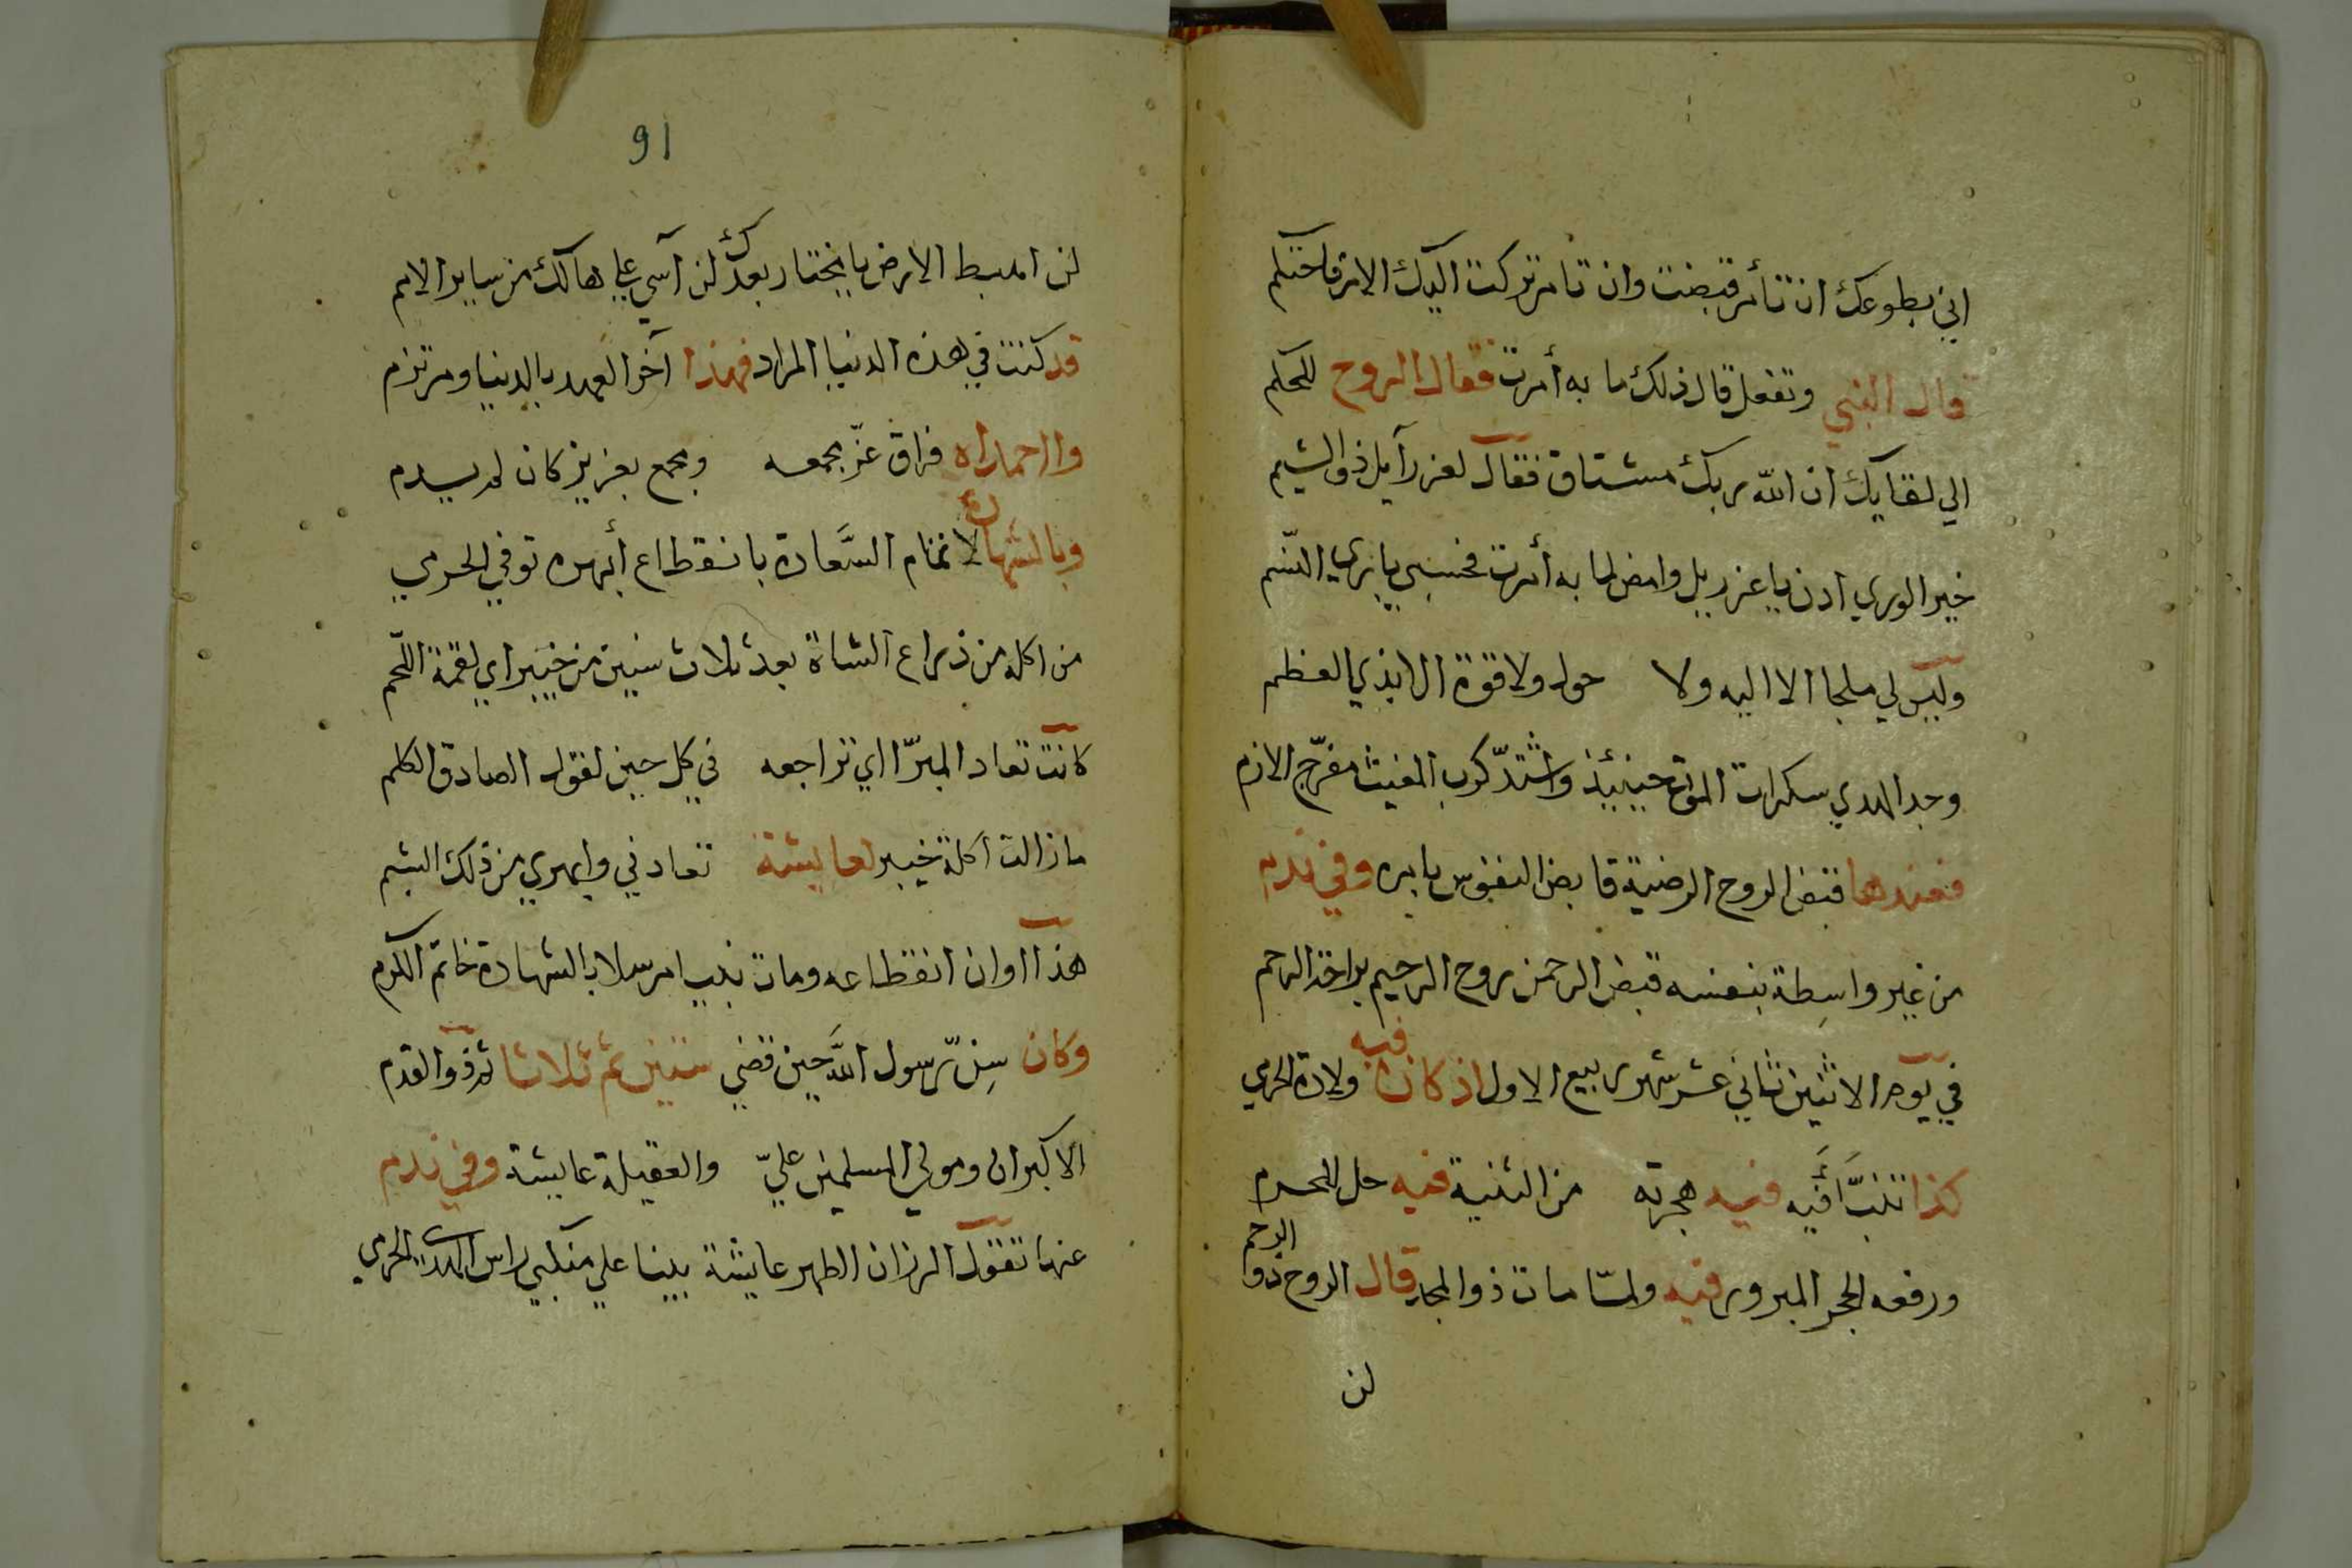 اني بطوعك ان تأمر قبضت وان تامر تركت اليك الامر فاحتكم
قال النبي وتفعل قال ذلك ما به أمرت فقال الروح للحكم
الي لقايك ان الله ربك مشتاق فقال لعزرآيل ذو الشيم
خير الوري ادن يا عزرييل وامض لما به أمرت فحسبي باري النسم
وليس لي ملجا الا اليه ولا حول ولا قوة الا بذي العظم
وجد الهدي سكرات الموت حينئيذ واشتدّ كرب المغيث مفرّج الازم
فعندها قبض الروح الرضية قابض النفوس بايده وفي ندم
من غير واسِطة بنفسه قبض الرحمن روح الرحيم براخة الرحم
في يوم الاثنين ثاني عشر شهر ربيع الاول اذ كان فيه ولادة الحرمي
كذا تنبَّأ فيه فيه هجرته من الثنية فيه حل للحرم
ورفعه الحجر المبرور فيه ولمّا مات ذو المجد قال الروح ذو الرحم
لن
91
لن اهبط الارض يا مختار بعدك لن آسي علي هالك من ساير الامم
قد كنت في هذه الدنيا المراد فهذا آخر العهد بالدنيا ومرتزم
وااحمداه فراق عزّ مجمعه ومجمع بعزيز كان لم يدم
وبالشهادة لا تمام السَّعادة بانقطاع أبهره توفي الحرمي
من اكله من ذراع الشاة بعد ثلاث سنين من خيبر اي لقمة اللّحم
كانت تعاد المبرّا اي تراجعه في كل حين لقول الصادق الكلم
مازالت اكلة خيبر لعايشة تعادني وابهري من ذلك البشم
هذا اوان انقطاعه ومات نبيا مرسلا بالشهادة خاتم الكرم
وكان سِنّ رسول الله حين قضي ستين ثم ثلاثا ثم ذو القدم
الاكبران ومولي المسلمين عليّ والعقيلة عايشة وفي ندم
عنها تقول الرزان الطهر عايشة بينا علي منكبي راس الهدي الحرمي